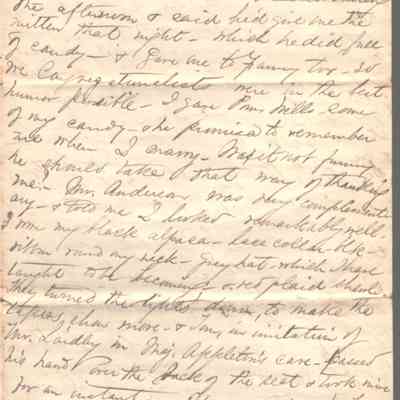 the afternoon & said he'd give me the
mitten that night - which he did full
of candy - & gave one to Fanny too - So
we Congregationalists were in the best
humor possible - I gave Prss Wells some
of my candy - she promised to remember
me when I marry - Was it not funny
he should take that way of thanking
me - Mr. Anderson was very compliment-
ary - & told me I looked remarkably well
I wore my black alpaca - lace collar blk-
ribbon round my neck - Grey hat - which I have
taught to be becoming & red plaid shawl -
They turned the lights down, to make the
tapers show more - & in imitation of
Mr. Laidly in Maj. Appleton's case - passed
his hand over the back of the seat & took mine
for an instant